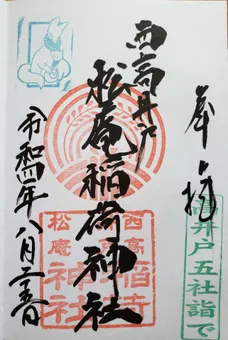 奉拝
高井戸五社詣で
西高井戸
松庵稲荷神社
西高
松庵
稲荷
神社
令和四年八月二十一日